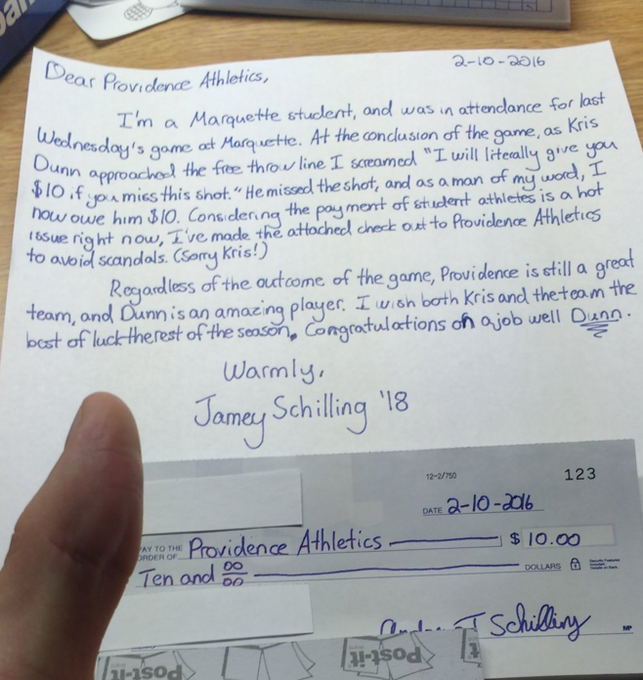 Dear Providence Athletics,
2-10-2016
I'm a Marquette student, and was in attendance for last
Wednesday's game at Marquette. At the conclusion of the game, as Kris
Dunn approached the free throw line I screamed "I will literally give you
$10 if you miss this shot." He missed the shot, and as a man of my word, I
now owe him $10. Considering the payment of student athletes is a hot
issue right now, I've made the attached check out to Providence Athletics
to avoid scandals. (Sorry Kris!)
Regardless of the outcome of the game, Providence is still a great
team, and Dunn is an amazing player. I wish both Kris and the team the
best of luck the rest of the season. Congratulations on a job well Dunn.
Warmly,
Jamey Schilling '18
12-2/750
123
DATE 2-10-2016
PAY TO THE
ORDER OF Providence Athletics $ 10.00
Ten and 00/00 DOLLARS
J Schilling
MP
Post-it
Post-it